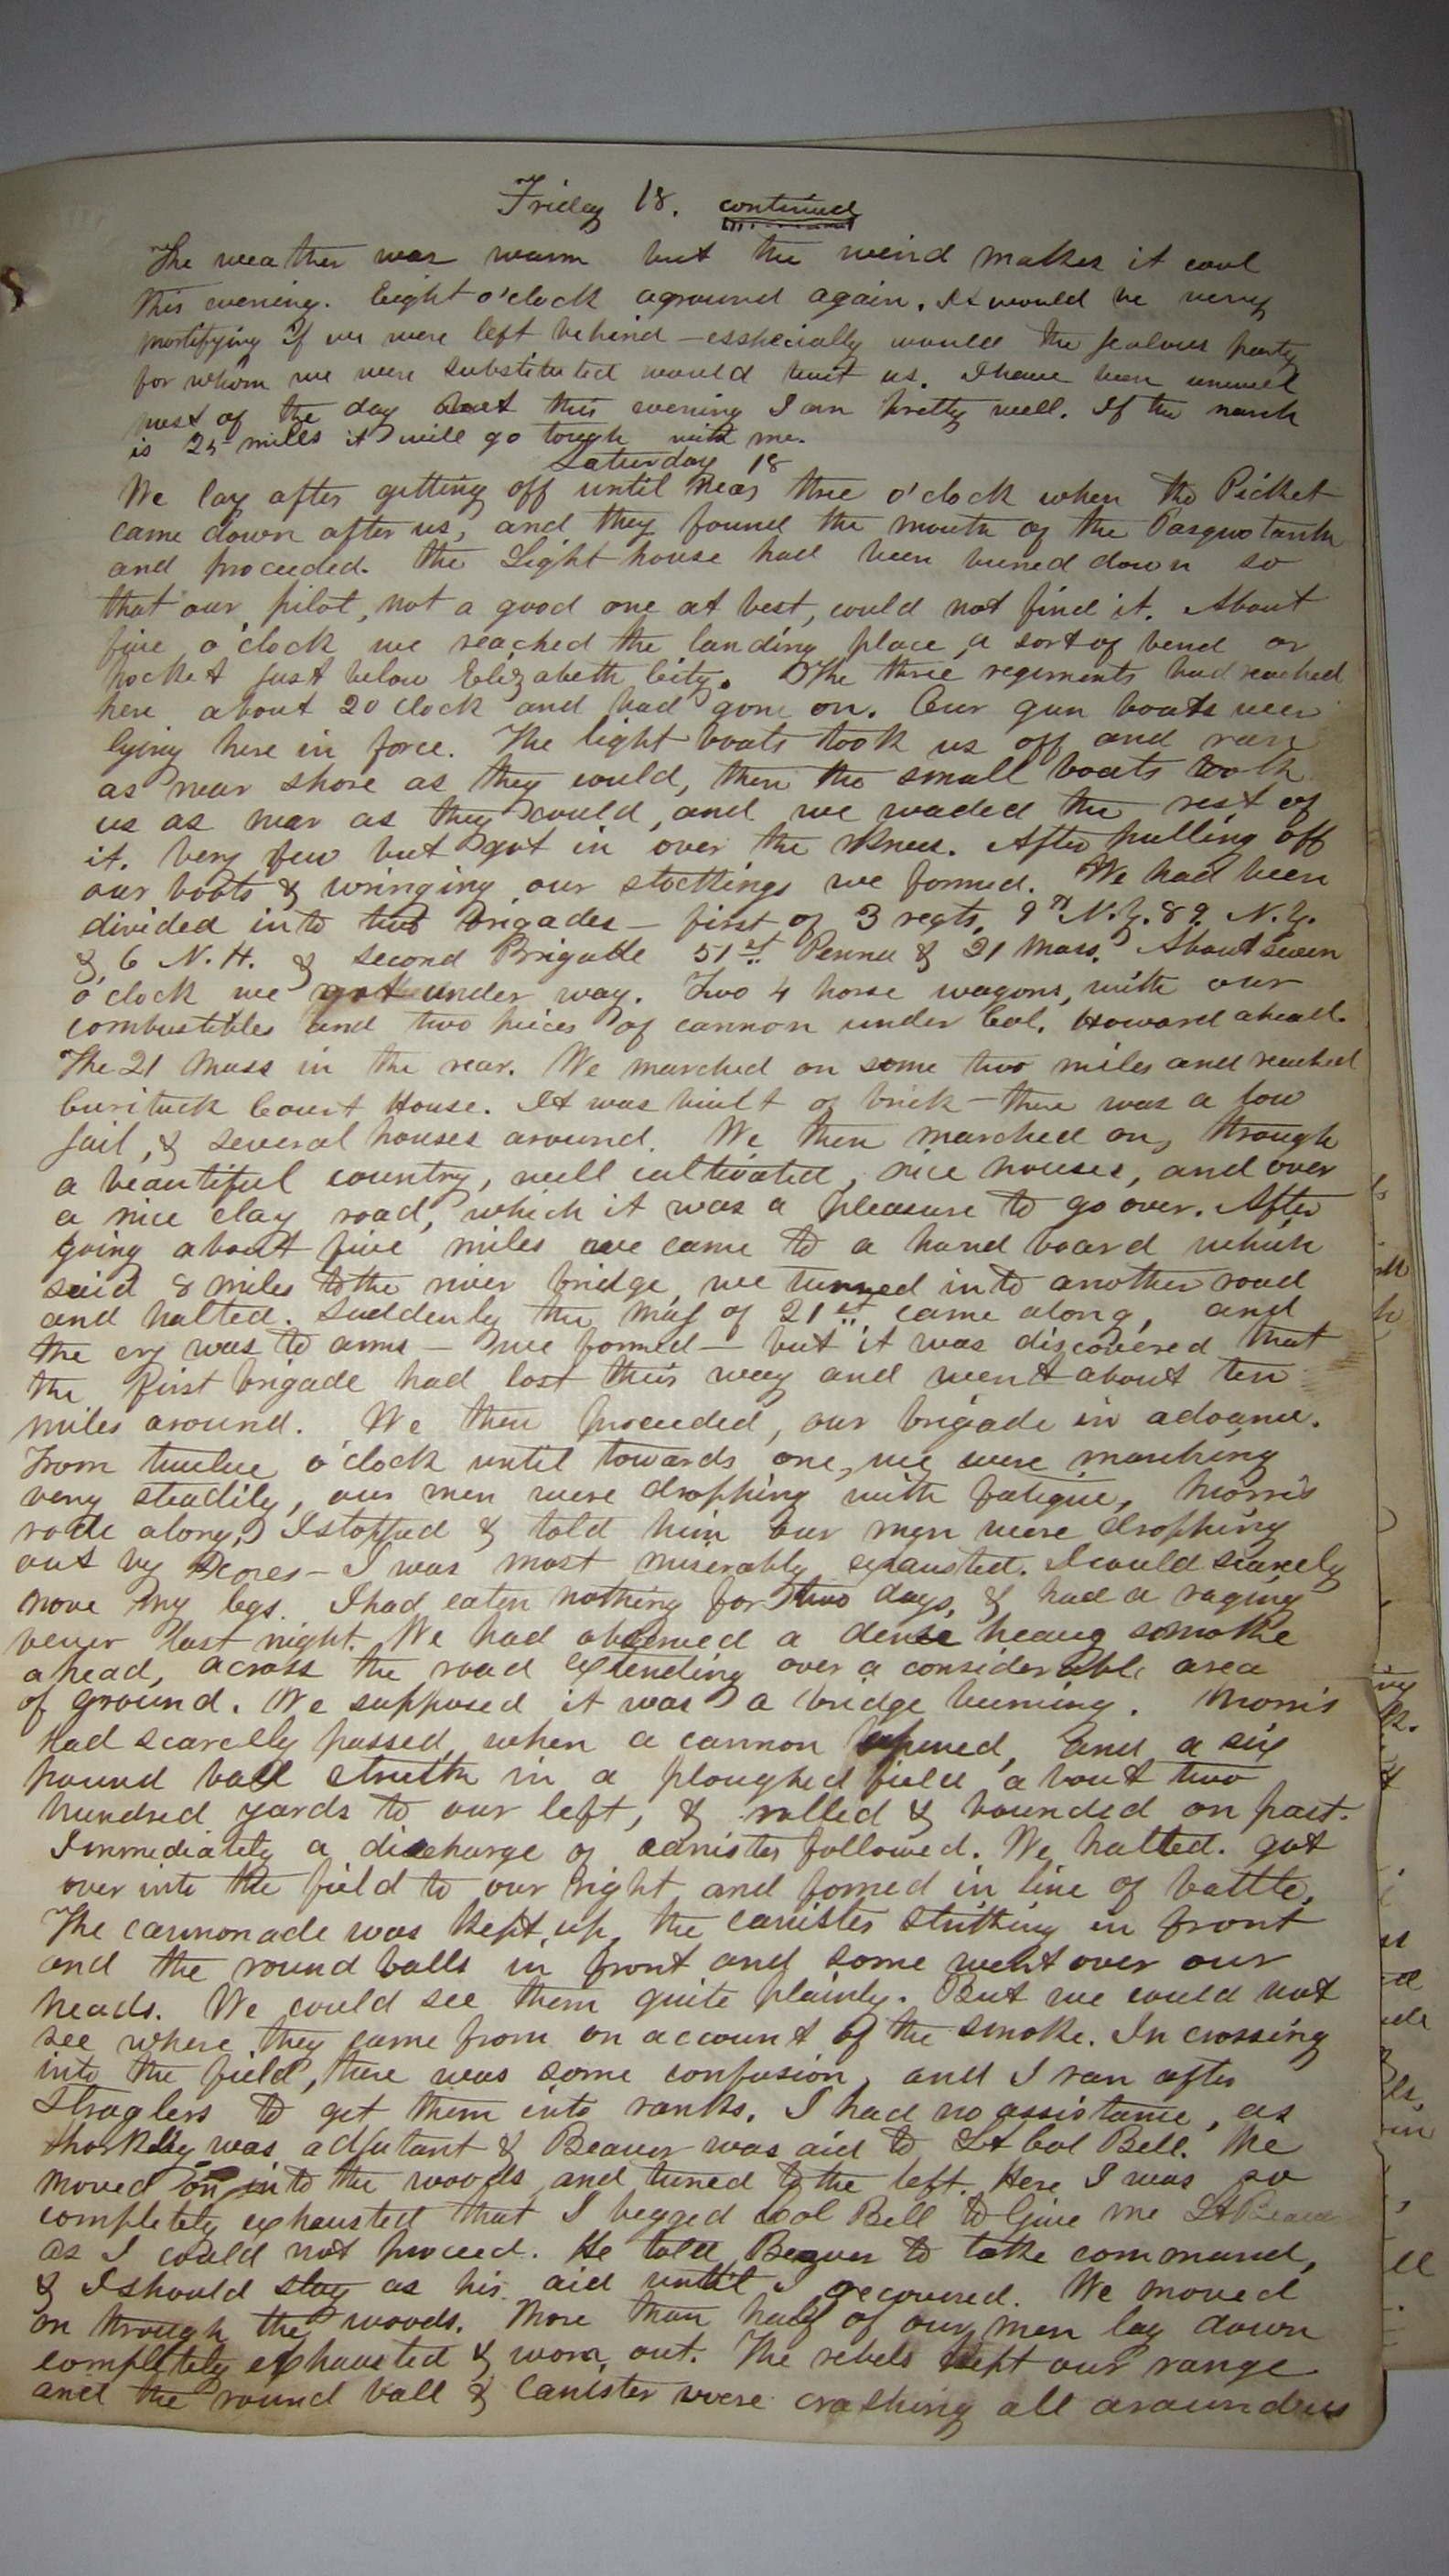 Friday 18. continued
The weather was warm but the wind makes it cool
this evening. Eight o'clock aground again. It would be very
mortifying if we were left behind – esshecially would the jealous party
for whom we were substituted would hurt us. I have been unwell
most of the day but this evening I am pretty well. If the march
is 25 miles it will go tough with me.
Saturday 18
We lay after getting off until near three o'clock when the Picket
came down after us, and they found the mouth of the Pasquotank
and proceeded. the Light house had been burned down so
that our pilot, not a good one at best, could not find it. About
five o'clock we reached the landing place, a sort of bend or
pocket just below Elizabeth City. The three regiments had reached
here about 2 o clock and had gone on. Our gun boats were
lying here in force. The light boats took us off and ran
as near shore as they could, then the small boats took
us as near as they could, and we waded the rest of
it. Very few but got in over the knees. After pulling off
our boots & wringing our stockings we formed. We had been
divided into two brigades – first of 3 regts, 9th N.Y. 89 N.Y.
& 6 N.H. & second Brigade 51st Penna & 21 Mass. About seven
o'clock we got under way. Two 4 horse wagons, with our
combustibles and two pieces of cannon under Col. Howard ahead.
The 21 Mass in the rear. We marched on some two miles and reached
Curituck Court House. It was built of brick – there was a low
jail, & several houses around. We then marched on, through
a beautiful country, well cultivated, nice houses, and over
a nice clay road, which it was a pleasure to go over. After
going about five miles we came to a hand board which
said 8 miles to the river bridge, we turned into another road
and halted. Suddenly the Maj of 21st came along, and
the cry was to arms – we formed – but it was discovered that
the first brigade had lost their way and went about ten
miles around. We then proceeded, our brigade in advance.
From twelve o'clock until towards one, we were marching
very steadily, our men were dropping with fatigue, Morris
rode along, I stopped & told him our men were dropping
out by scores – I was most miserably exhausted. I could scarcely
move my legs. I had eaten nothing for two days, & had a raging
fever last night. We had observed a dense heavy smoke
ahead, across the road extending over a considerable area
of ground. We supposed it was a bridge burning. Morris
had scarcely passed, when a cannon opened, and a six
pound ball struck in a ploughed field about two
hundred yards to our left, & rolled & bounded on past.
Immediately a discharge of canister followed. We halted. got
over into the field to our right and formed in line of battle.
The cannonade was kept up, the canister striking in front
and the round balls in front and some went over our
heads. We could see them quite plainly. But we could not
see where they came from on account of the smoke. In crossing
into the field, there was some confusion, and I ran after
straglers to get them into ranks. I had no assistance, as
Shorkley was adjutant & Beaver was aid to Lt Col Bell. We
moved on into the woods and tuned to the left. Here I was so
completely exhausted that I begged Col Bell to give me Lt Beaver
as I could not proceed. He told Beaver to take command,
& I should stay as his aid until I recovered. We moved
on through the woods. More than half of our men lay down
completely exhausted & worn out. The rebels kept our range
and the round ball & canister were crashing all around us